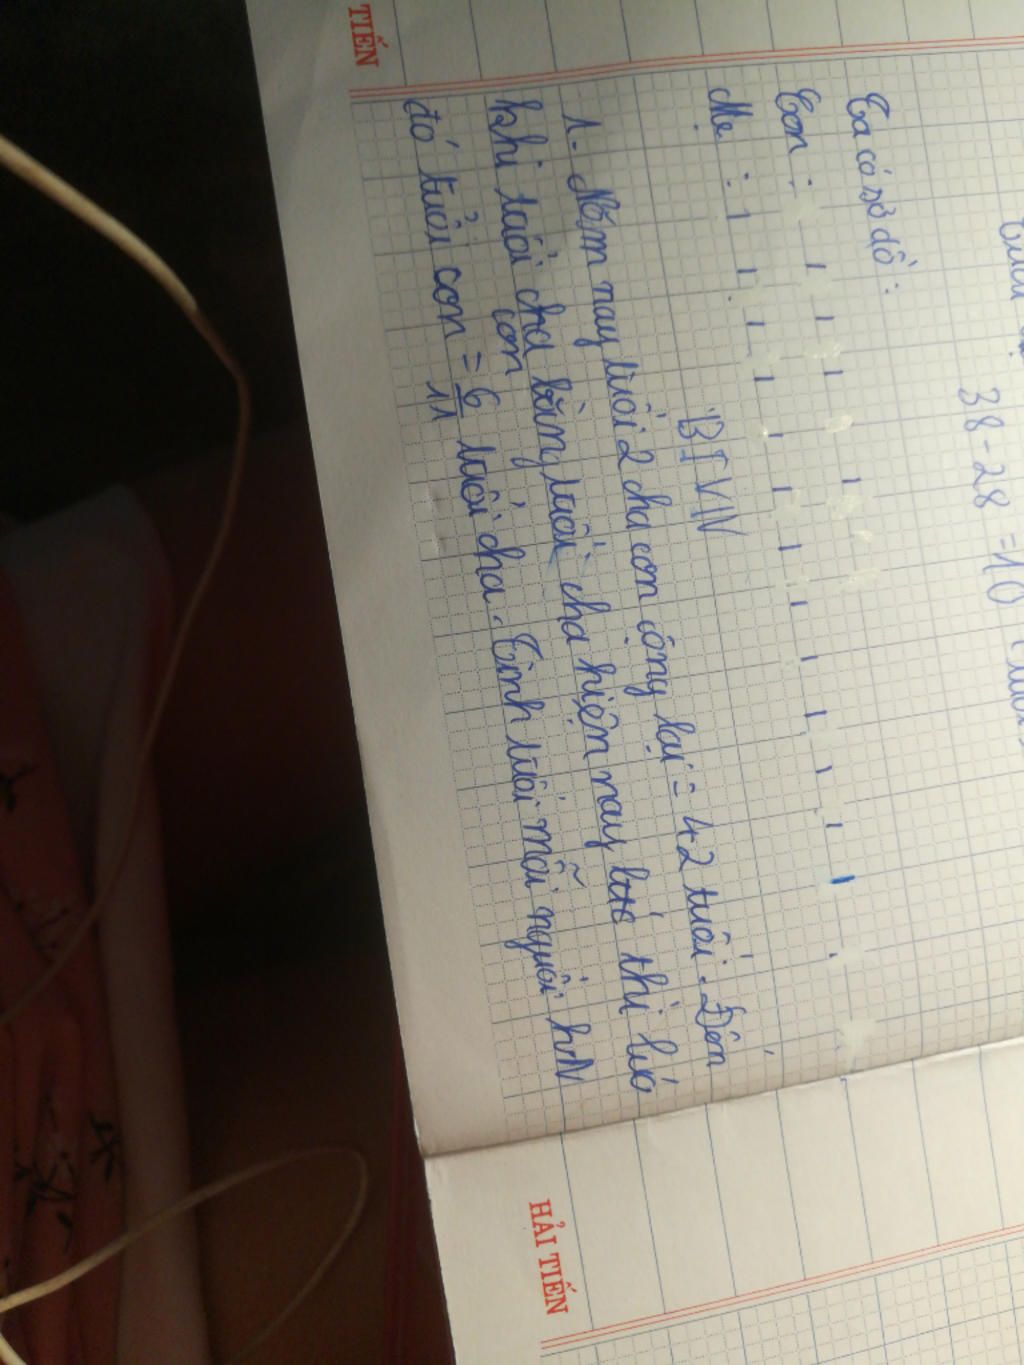 38 - 28 = 10
Ta có sơ đồ :
Con :
Mẹ :
BTVN
1. Năm nay tuổi 2 cha con cộng lại = 42 tuổi. Đến
khi tuổi cha bằng tuổi cha hiện nay thì lúc
con
đó tuổi con = 6/11 tuổi cha. Tính tuổi mỗi người hN
TIẾN
HẢI TIẾN